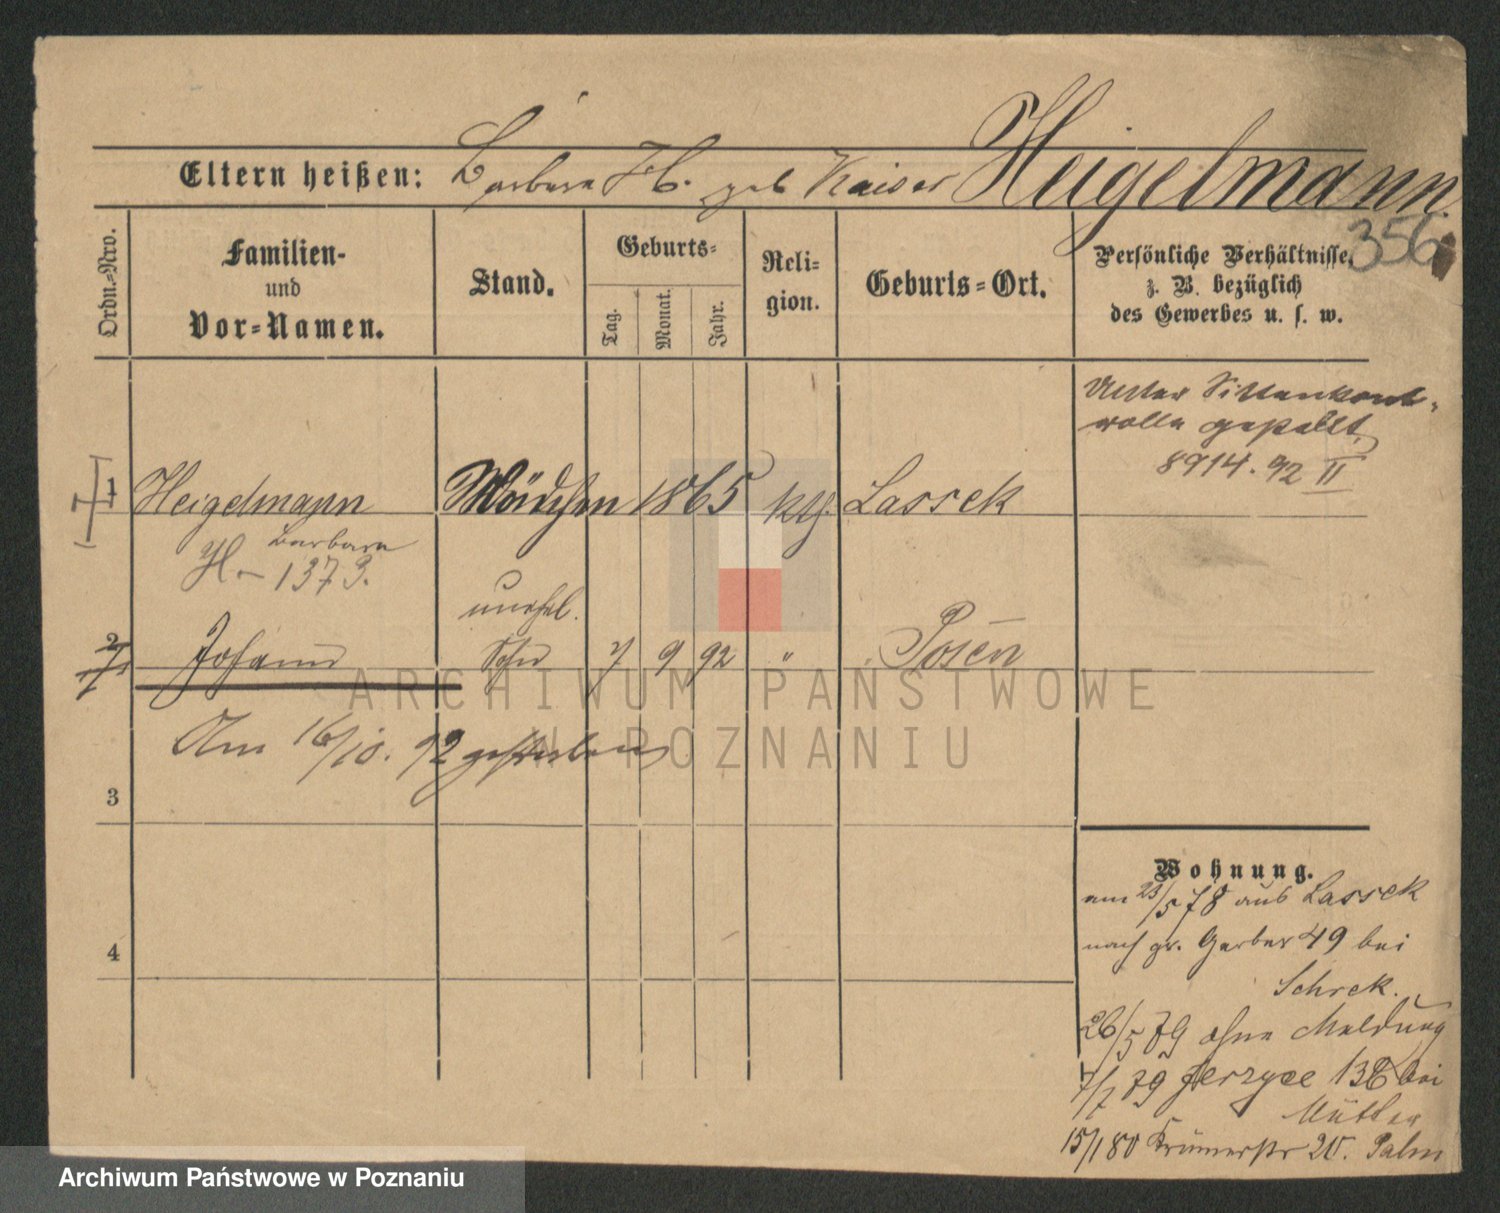 Eltern heißen: Barbara H. geb Kaiser Heigelmann.
356
Ordn.-Nro.
Familien-
und
Vor-Namen.
Stand.
Geburts-
Tag.
Monat.
Jahr.
Reli-
gion.
Geburts-Ort.
Persönliche Verhältnisse,
z. B. bezüglich
des Gewerbes u. s. w.
Unter Sittenkont-
rolle gestellt
8914.92 II
1 Heigelmann Mädchen 1865 kth. Lassek
Barbara
H-1373.
unehel.
2 Johann Sohn 7 9 92 " Posen
Am 16/10. 92 gestorben
3
4
Wohnung.
am 23/5 78 aus Lassek
nach gr. Gerber 49 bei
Schrek.
26/5 79 ohne Meldung
7/7 79 Jerzyce 13 bei
Mutter
15/1 80 Krämerstr 20. Palm
ARCHIWUM PAŃSTWOWE
W POZNANIU
Archiwum Państwowe w Poznaniu